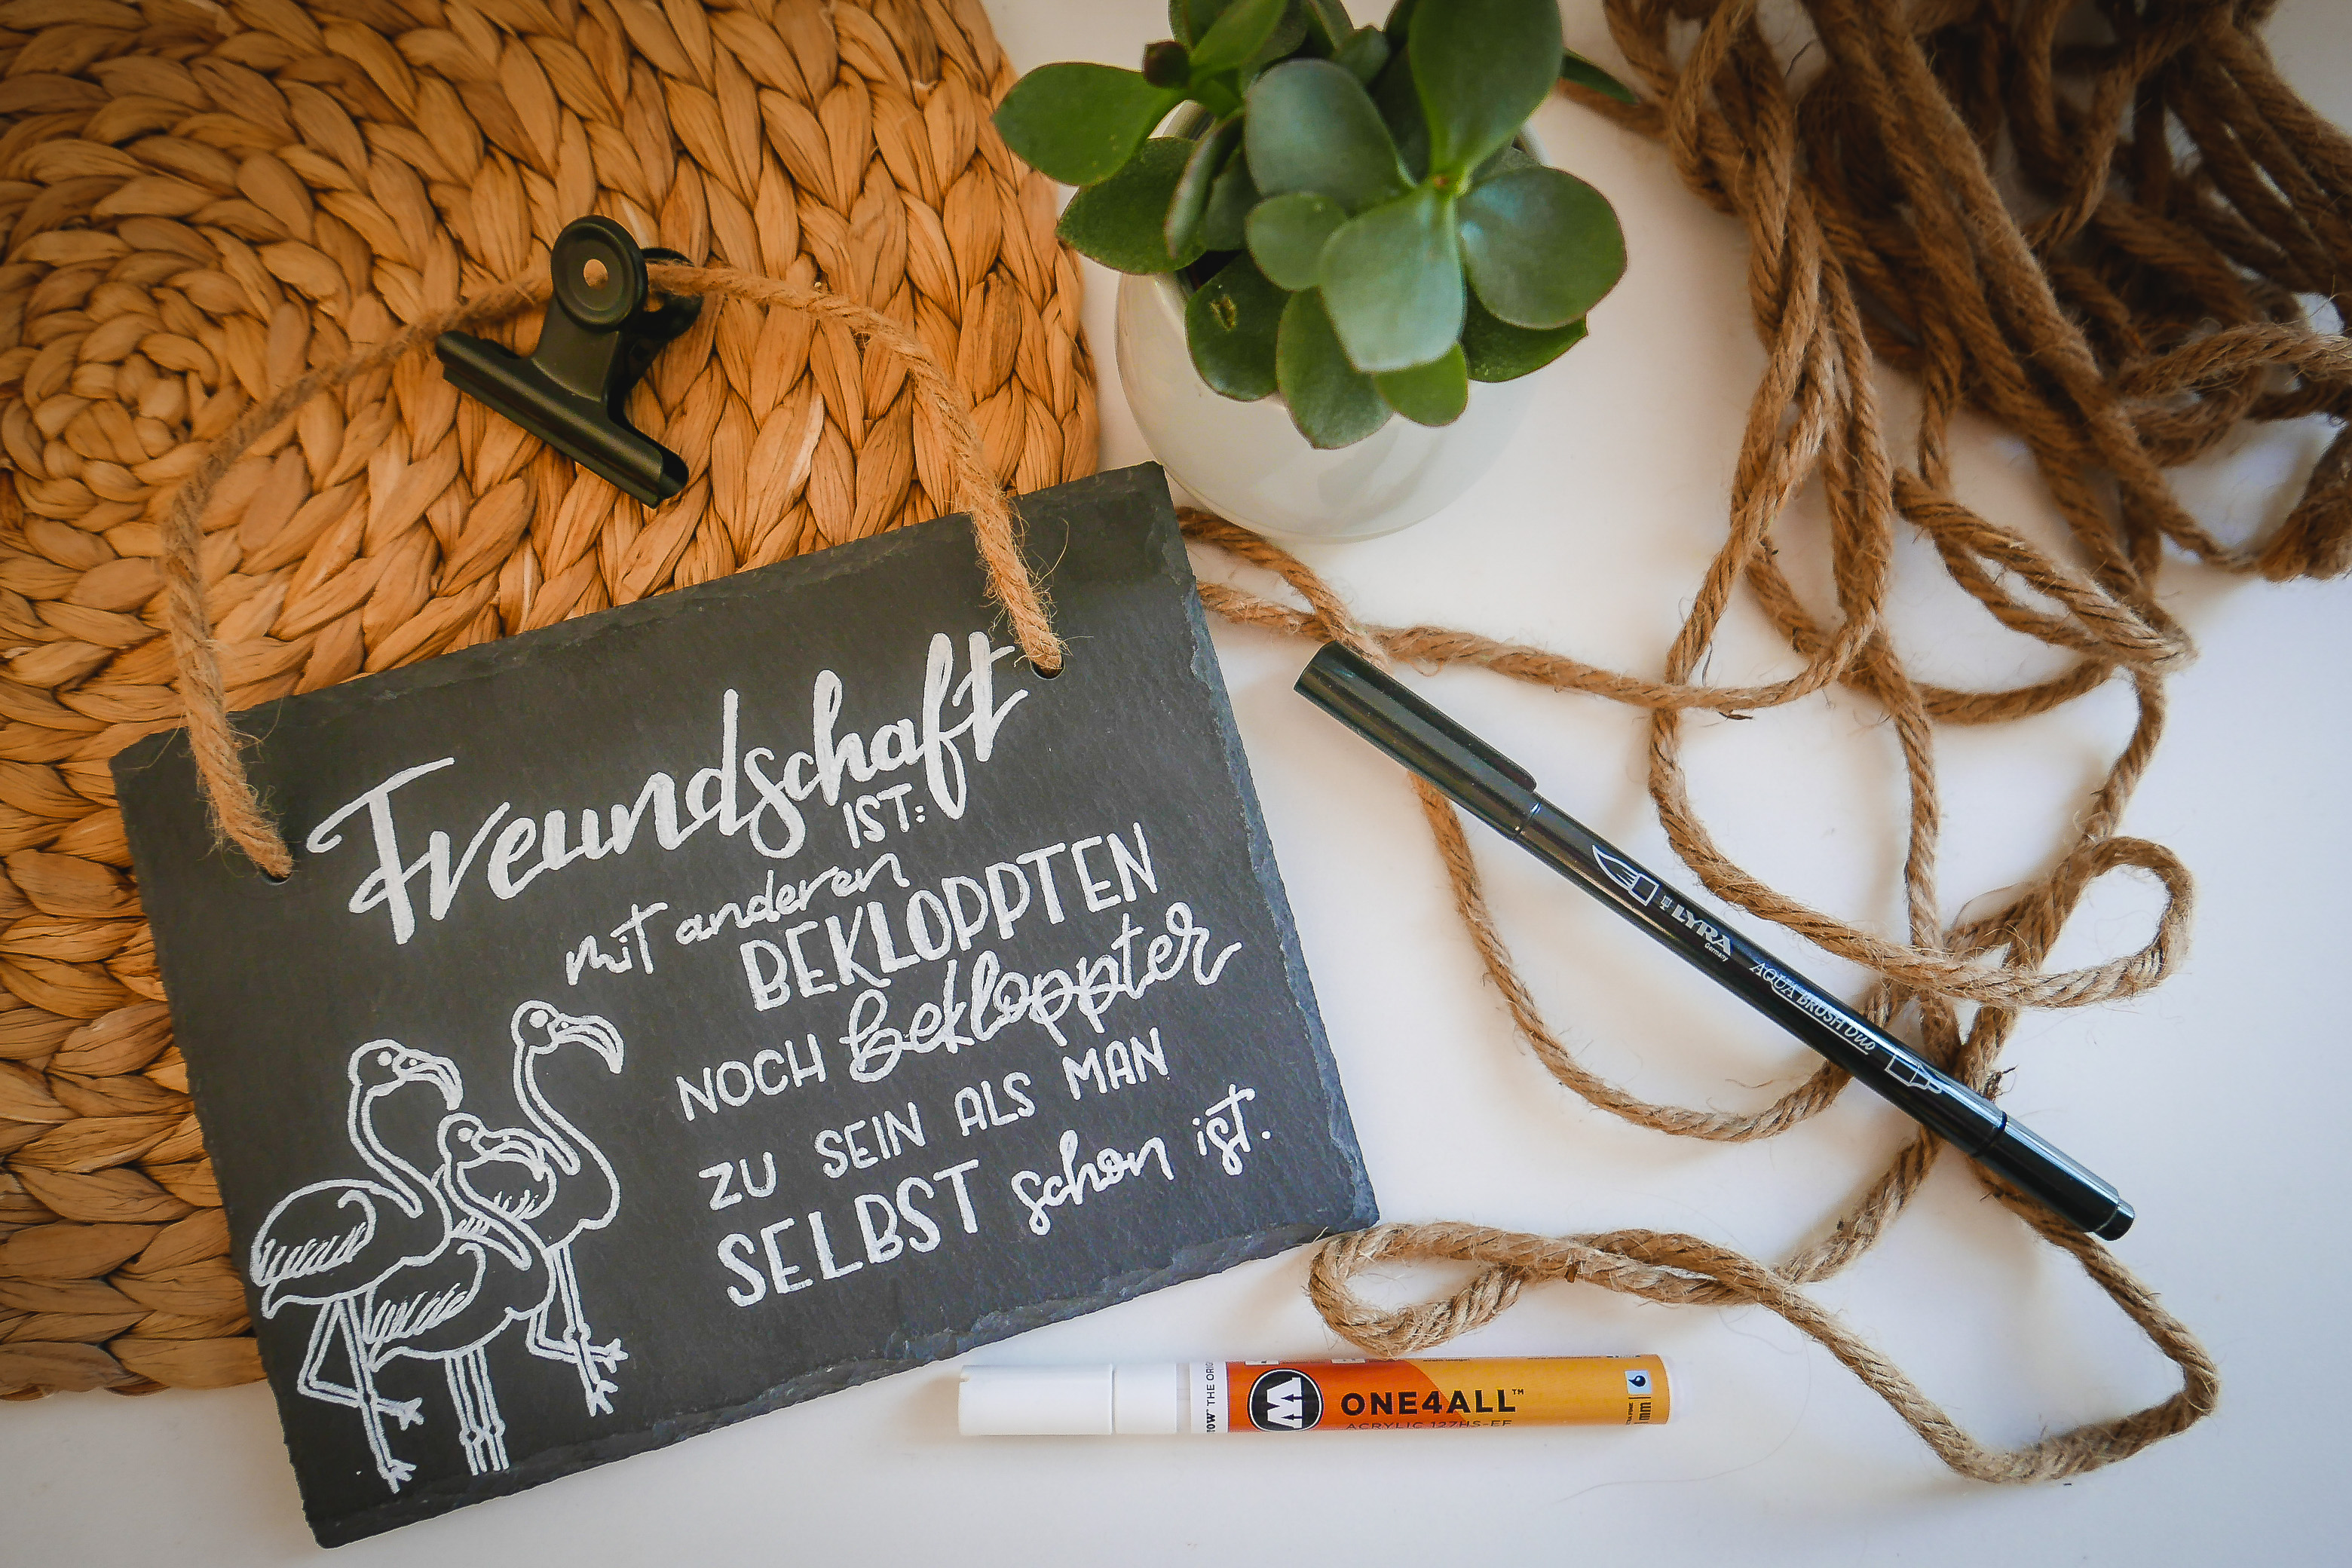 Freundschaft
IST:
mit anderen
BEKLOPPTEN
NOCH bekloppter
ZU SEIN ALS MAN
SELBST schon ist.
LYRA
Germany
AQUA BRUSH DUO
THE ORIG
ONE4ALL™
ACRYLIC 127HS-EF